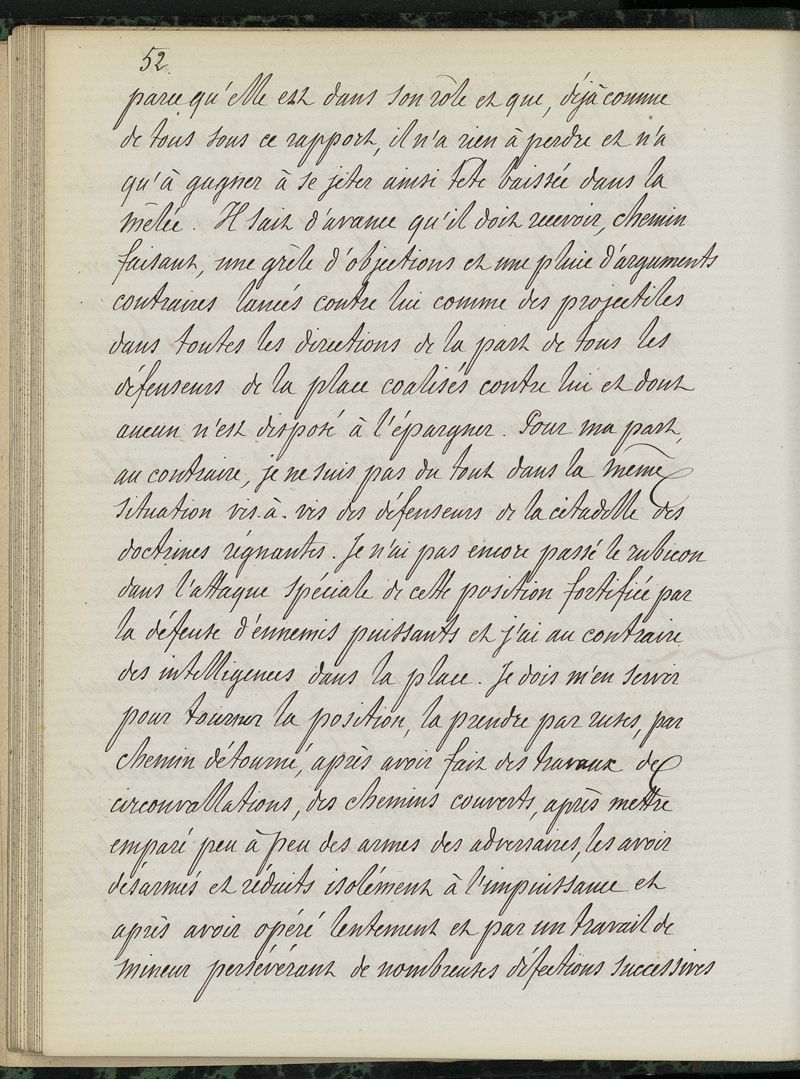 52.
parce qu'elle est dans son rôle et que, déjà comme
de tous sous ce rapport, il n'a rien à perdre et n'a
qu'à gagner à se jeter ainsi tête baissée dans la
mêlée. Il sait d'avance qu'il doit recevoir, chemin
faisant, une grêle d'objections et une pluie d'arguments
contraires lancés contre lui comme des projectiles
dans toutes les directions de la part de tous les
défenseurs de la place coalisés contre lui et dont
aucun n'est disposé à l'épargner. Pour ma part,
au contraire, je ne suis pas du tout dans la même
situation vis-à-vis des défenseurs de la citadelle des
doctrines régnantes. Je n'ai pas encore passé le rubicon
dans l'attaque spéciale de cette position fortifiée par
la défense d'ennemis puissants et j'ai au contraire
des intelligences dans la place. Je dois m'en servir
pour tourner la position, la prendre par ruses, par
chemin détourné, après avoir fait des travaux de
circonvallations, des chemins couverts, après mettre
emparé peu à peu des armes des adversaires, les avoir
désarmés et réduits isolément à l'impuissance et
après avoir opéré lentement et par un travail de
mineur persévérant de nombreuses défections successives